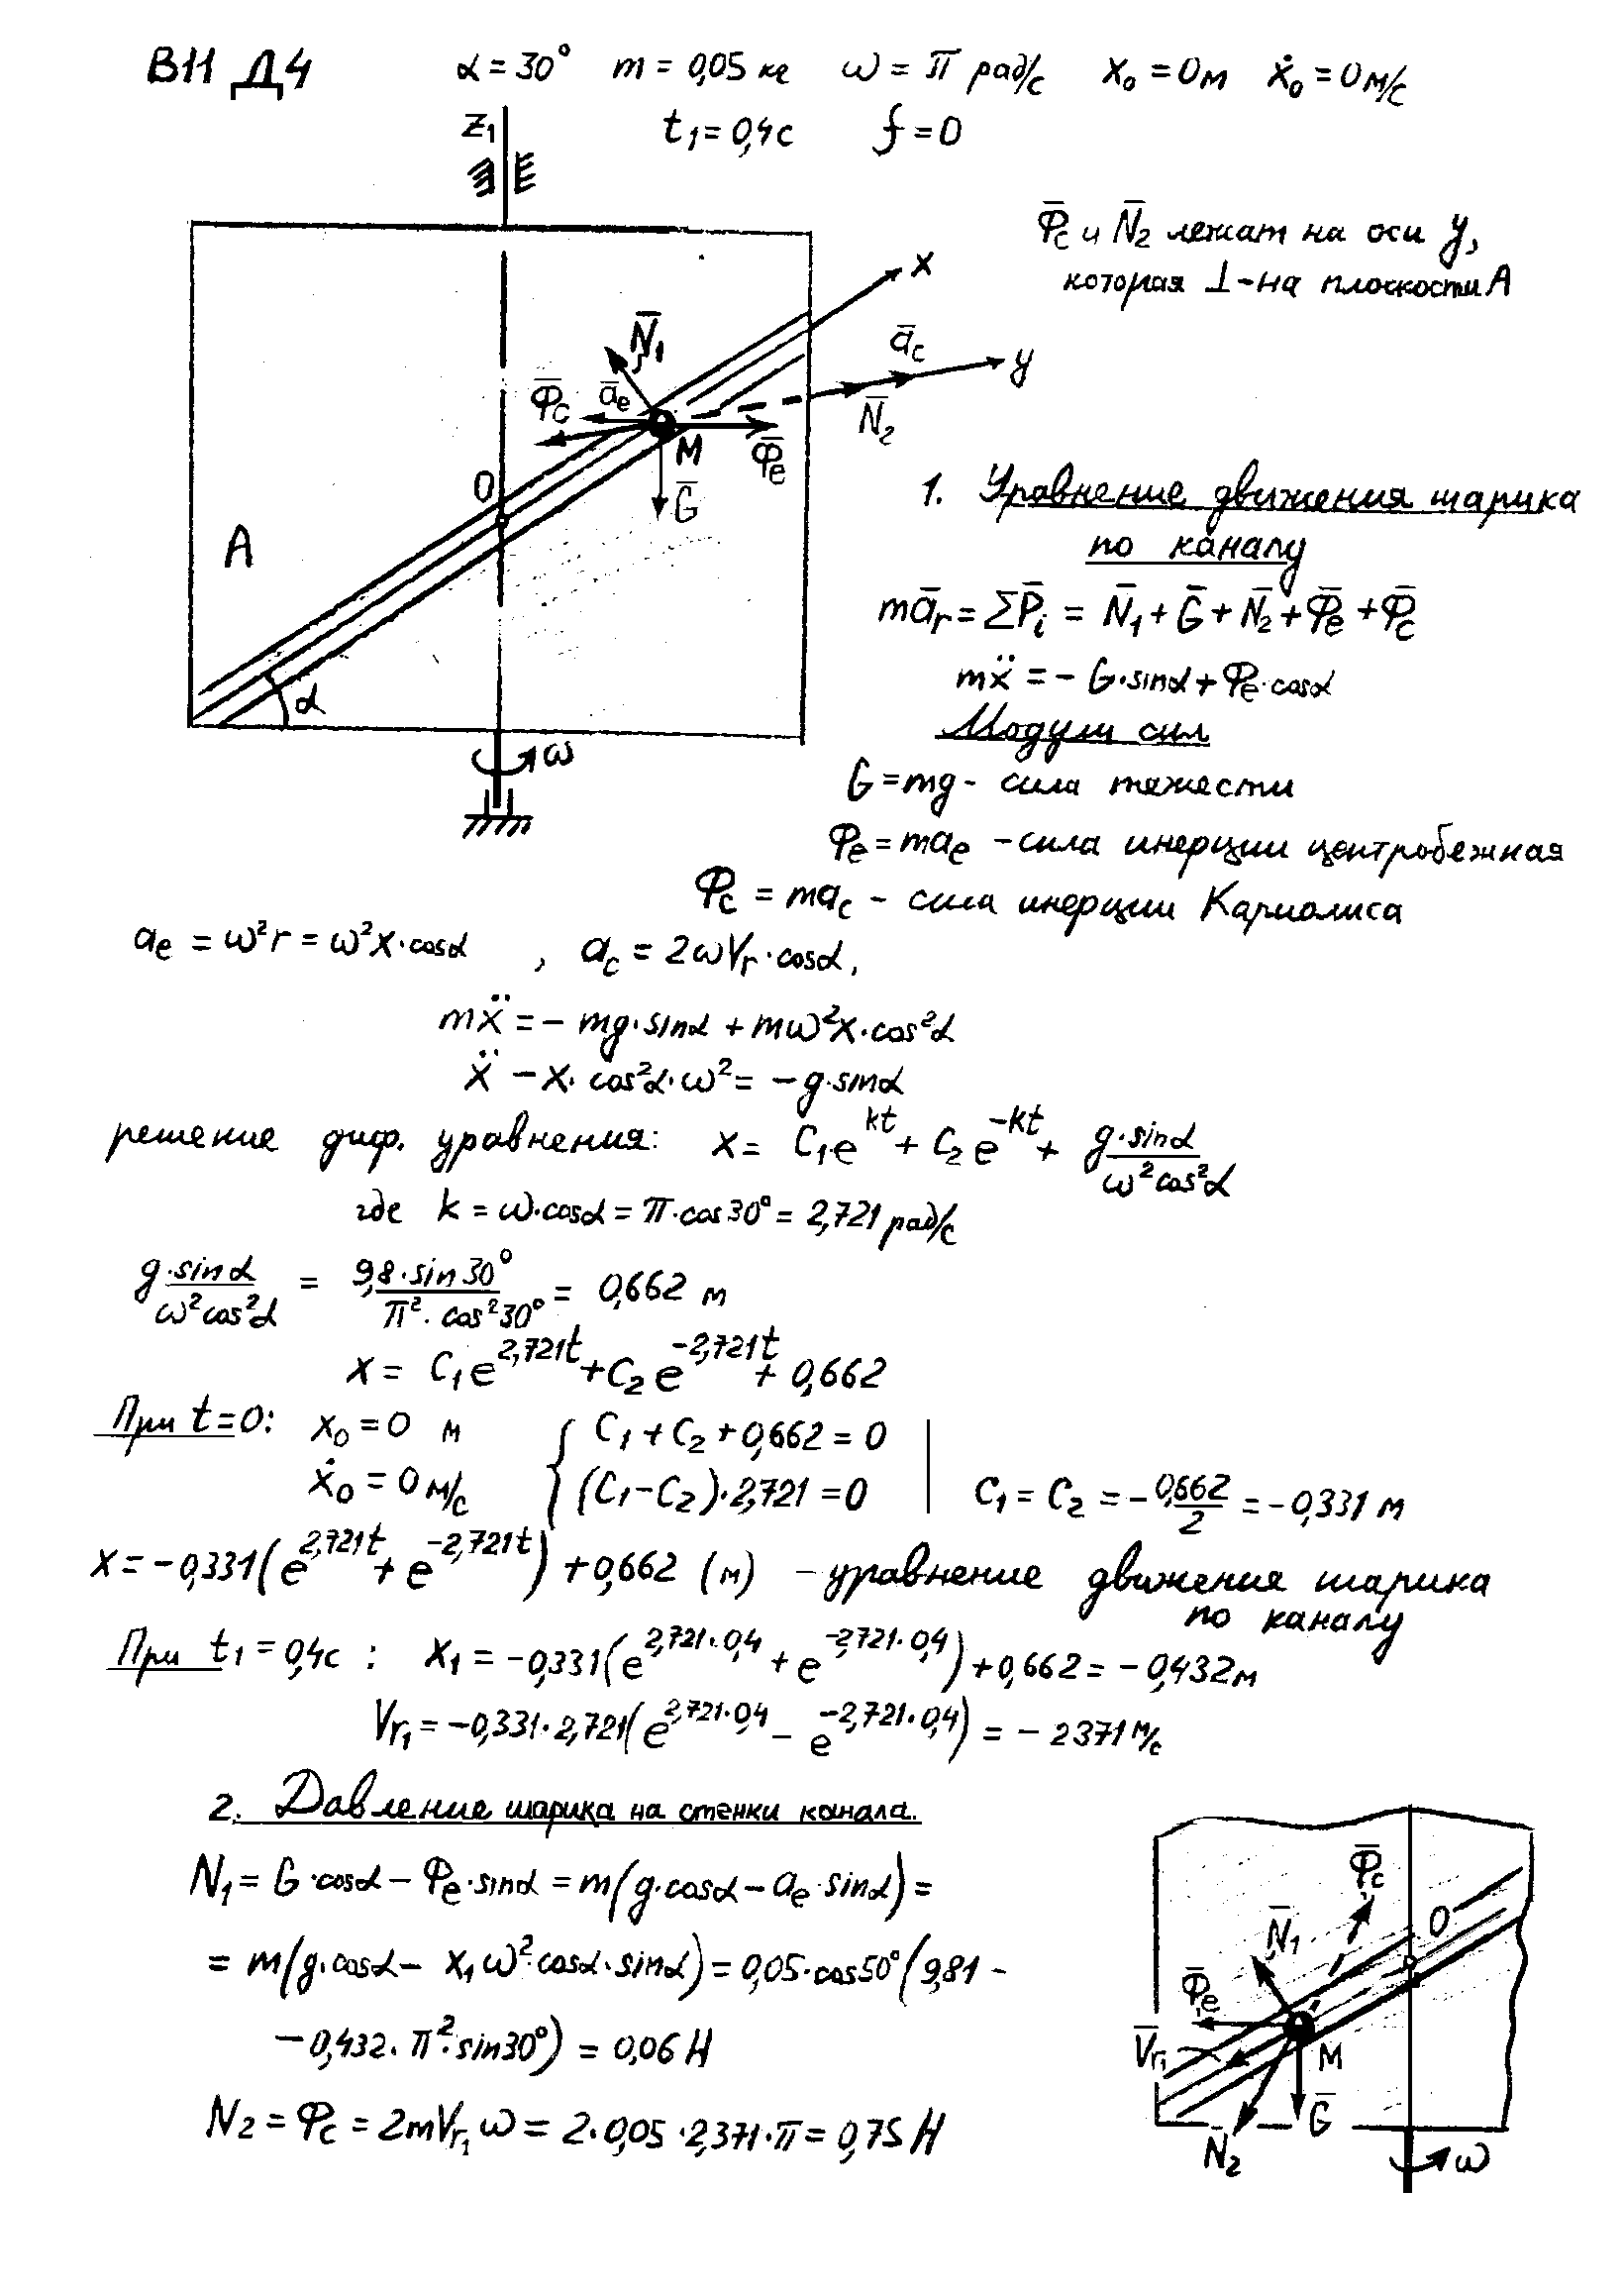 В11 Д4 α = 30° m = 0,05 кг ω = π рад/с x₀ = 0 м ẋ₀ = 0 м/с
t₁ = 0,4 с f = 0
z₁
Φ̅c и N̅₂ лежат на оси y,
которая ⊥-на плоскости A
x
N̅₁
a̅c
y
Φ̅c a̅e
N̅₂
M
Φ̅e
O
G̅
A
α
ω
1. Уравнение движения шарика
по каналу
ma̅r = ΣP̅i = N̅₁ + G̅ + N̅₂ + Φ̅e + Φ̅c
mẍ = - G·sinα + Φe·cosα
Модули сил
G = mg - сила тяжести
Φe = mae - сила инерции центробежная
Φc = mac - сила инерции Кариолиса
ae = ω²r = ω²x·cosα , ac = 2ωVr·cosα,
mẍ = - mg·sinα + mω²x·cos²α
ẍ - x·cos²α·ω² = -g·sinα
решение диф. уравнения: x = C₁e^kt + C₂e^-kt + g·sinα/ω²cos²α
где k = ω·cosα = π·cos30° = 2,721 рад/с
g·sinα/ω²cos²α = 9,8·sin30°/π²·cos²30° = 0,662 м
x = C₁e^2,721t + C₂e^-2,721t + 0,662
При t=0: x₀ = 0 м { C₁ + C₂ + 0,662 = 0
ẋ₀ = 0 м/с (C₁-C₂)·2,721 = 0 | C₁ = C₂ = -0,662/2 = -0,331 м
x = -0,331(e^2,721t + e^-2,721t) + 0,662 (м) - уравнение движения шарика
по каналу
При t₁ = 0,4с : x₁ = -0,331(e^2,721·0,4 + e^-2,721·0,4) + 0,662 = -0,432м
Vr₁ = -0,331·2,721(e^2,721·0,4 - e^-2,721·0,4) = - 2371 м/с
2. Давление шарика на стенки канала.
N₁ = G·cosα - Φe·sinα = m(g·cosα - ae·sinα) =
= m(g·cosα - x₁ω²·cosα·sinα) = 0,05·cos50°(9,81 -
- 0,432·π²·sin30°) = 0,06 Н
N₂ = Φc = 2mVr₁ω = 2·0,05·2,371·π = 0,75 Н
Φ̅c
N̅₁
O
Φ̅e
V̅r₁
M
G̅
N₂
ω